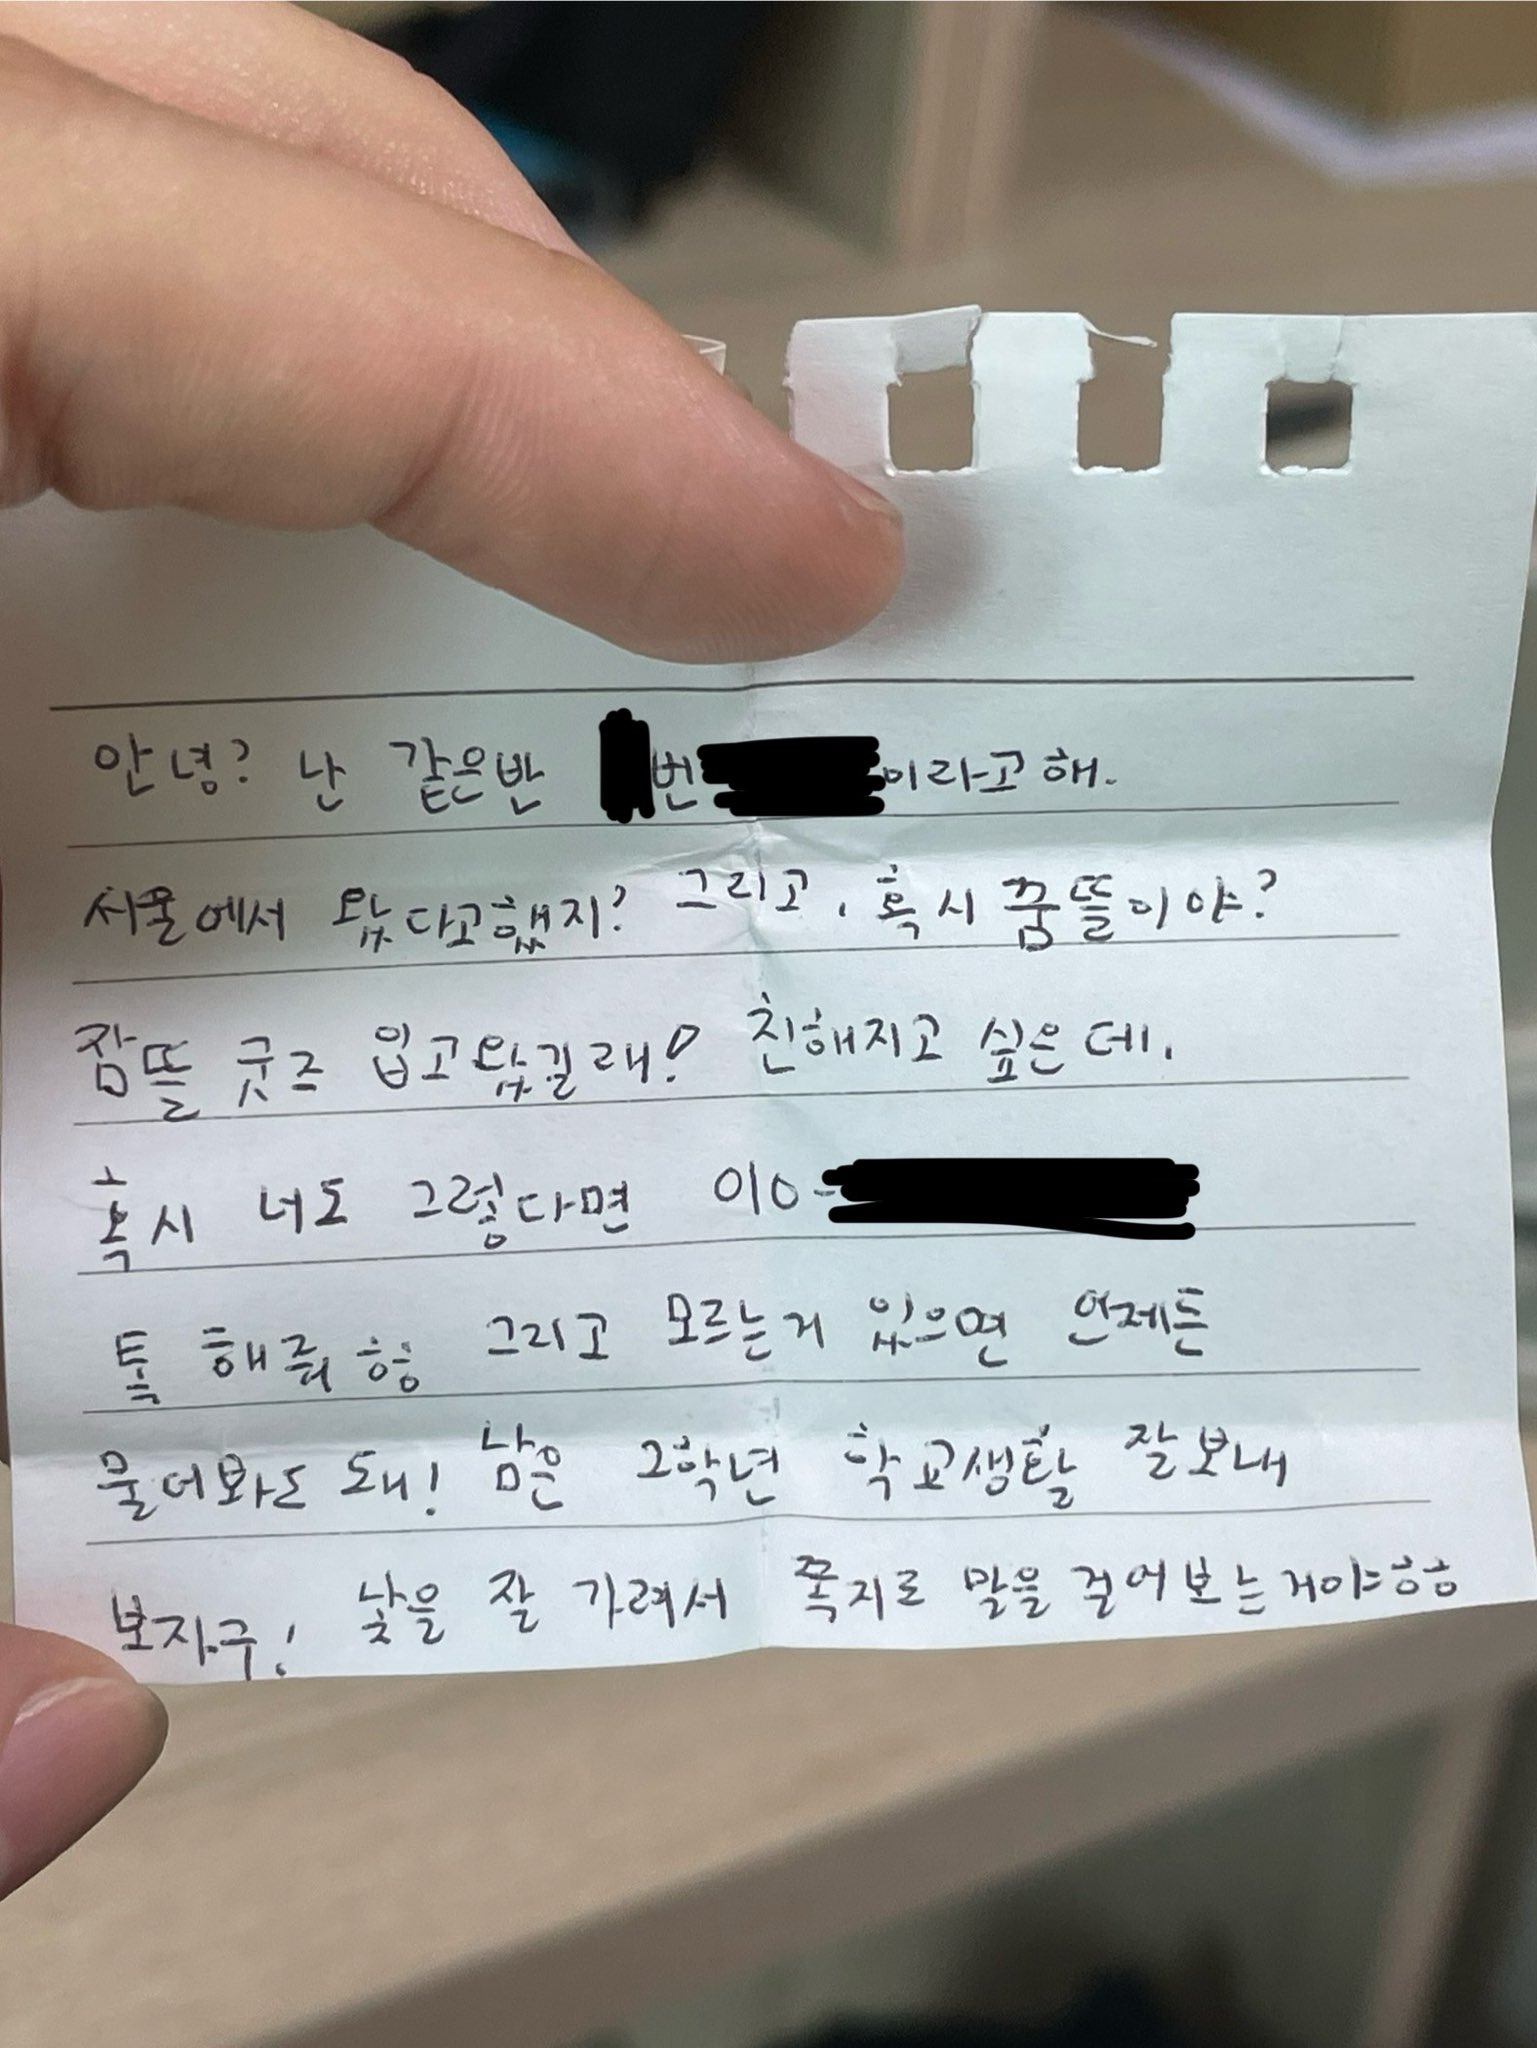 안녕? 난 같은반 번 이라고 해.
서울에서 왔다고했지? 그리고, 혹시 꿈뜰이야?
잠뜰 굿즈 입고왔길래! 친해지고 싶은데,
혹시 너도 그렇다면 010-
톡 해줘 ㅎㅎ 그리고 모르는거 있으면 언제든
물어봐도 돼! 남은 2학년 학교생활 잘보내
보자구! 낯을 잘 가려서 쪽지로 말을 걸어보는거야ㅎㅎ